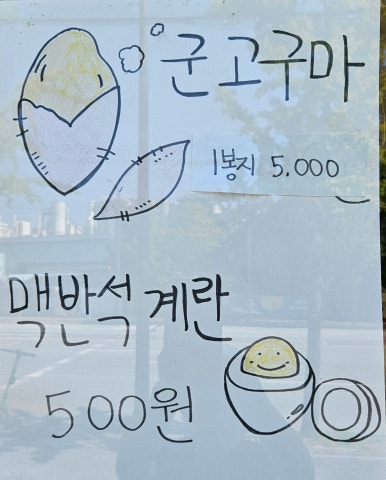 군고구마
1봉지 5.000
맥반석 계란
500원